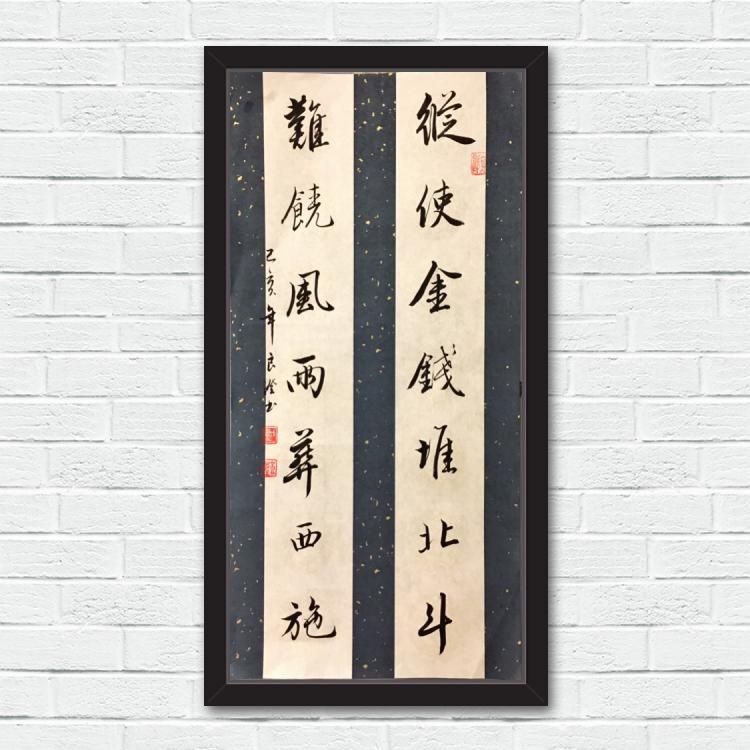 縱使金錢堆北斗
難饒風雨葬西施
己亥年良登书